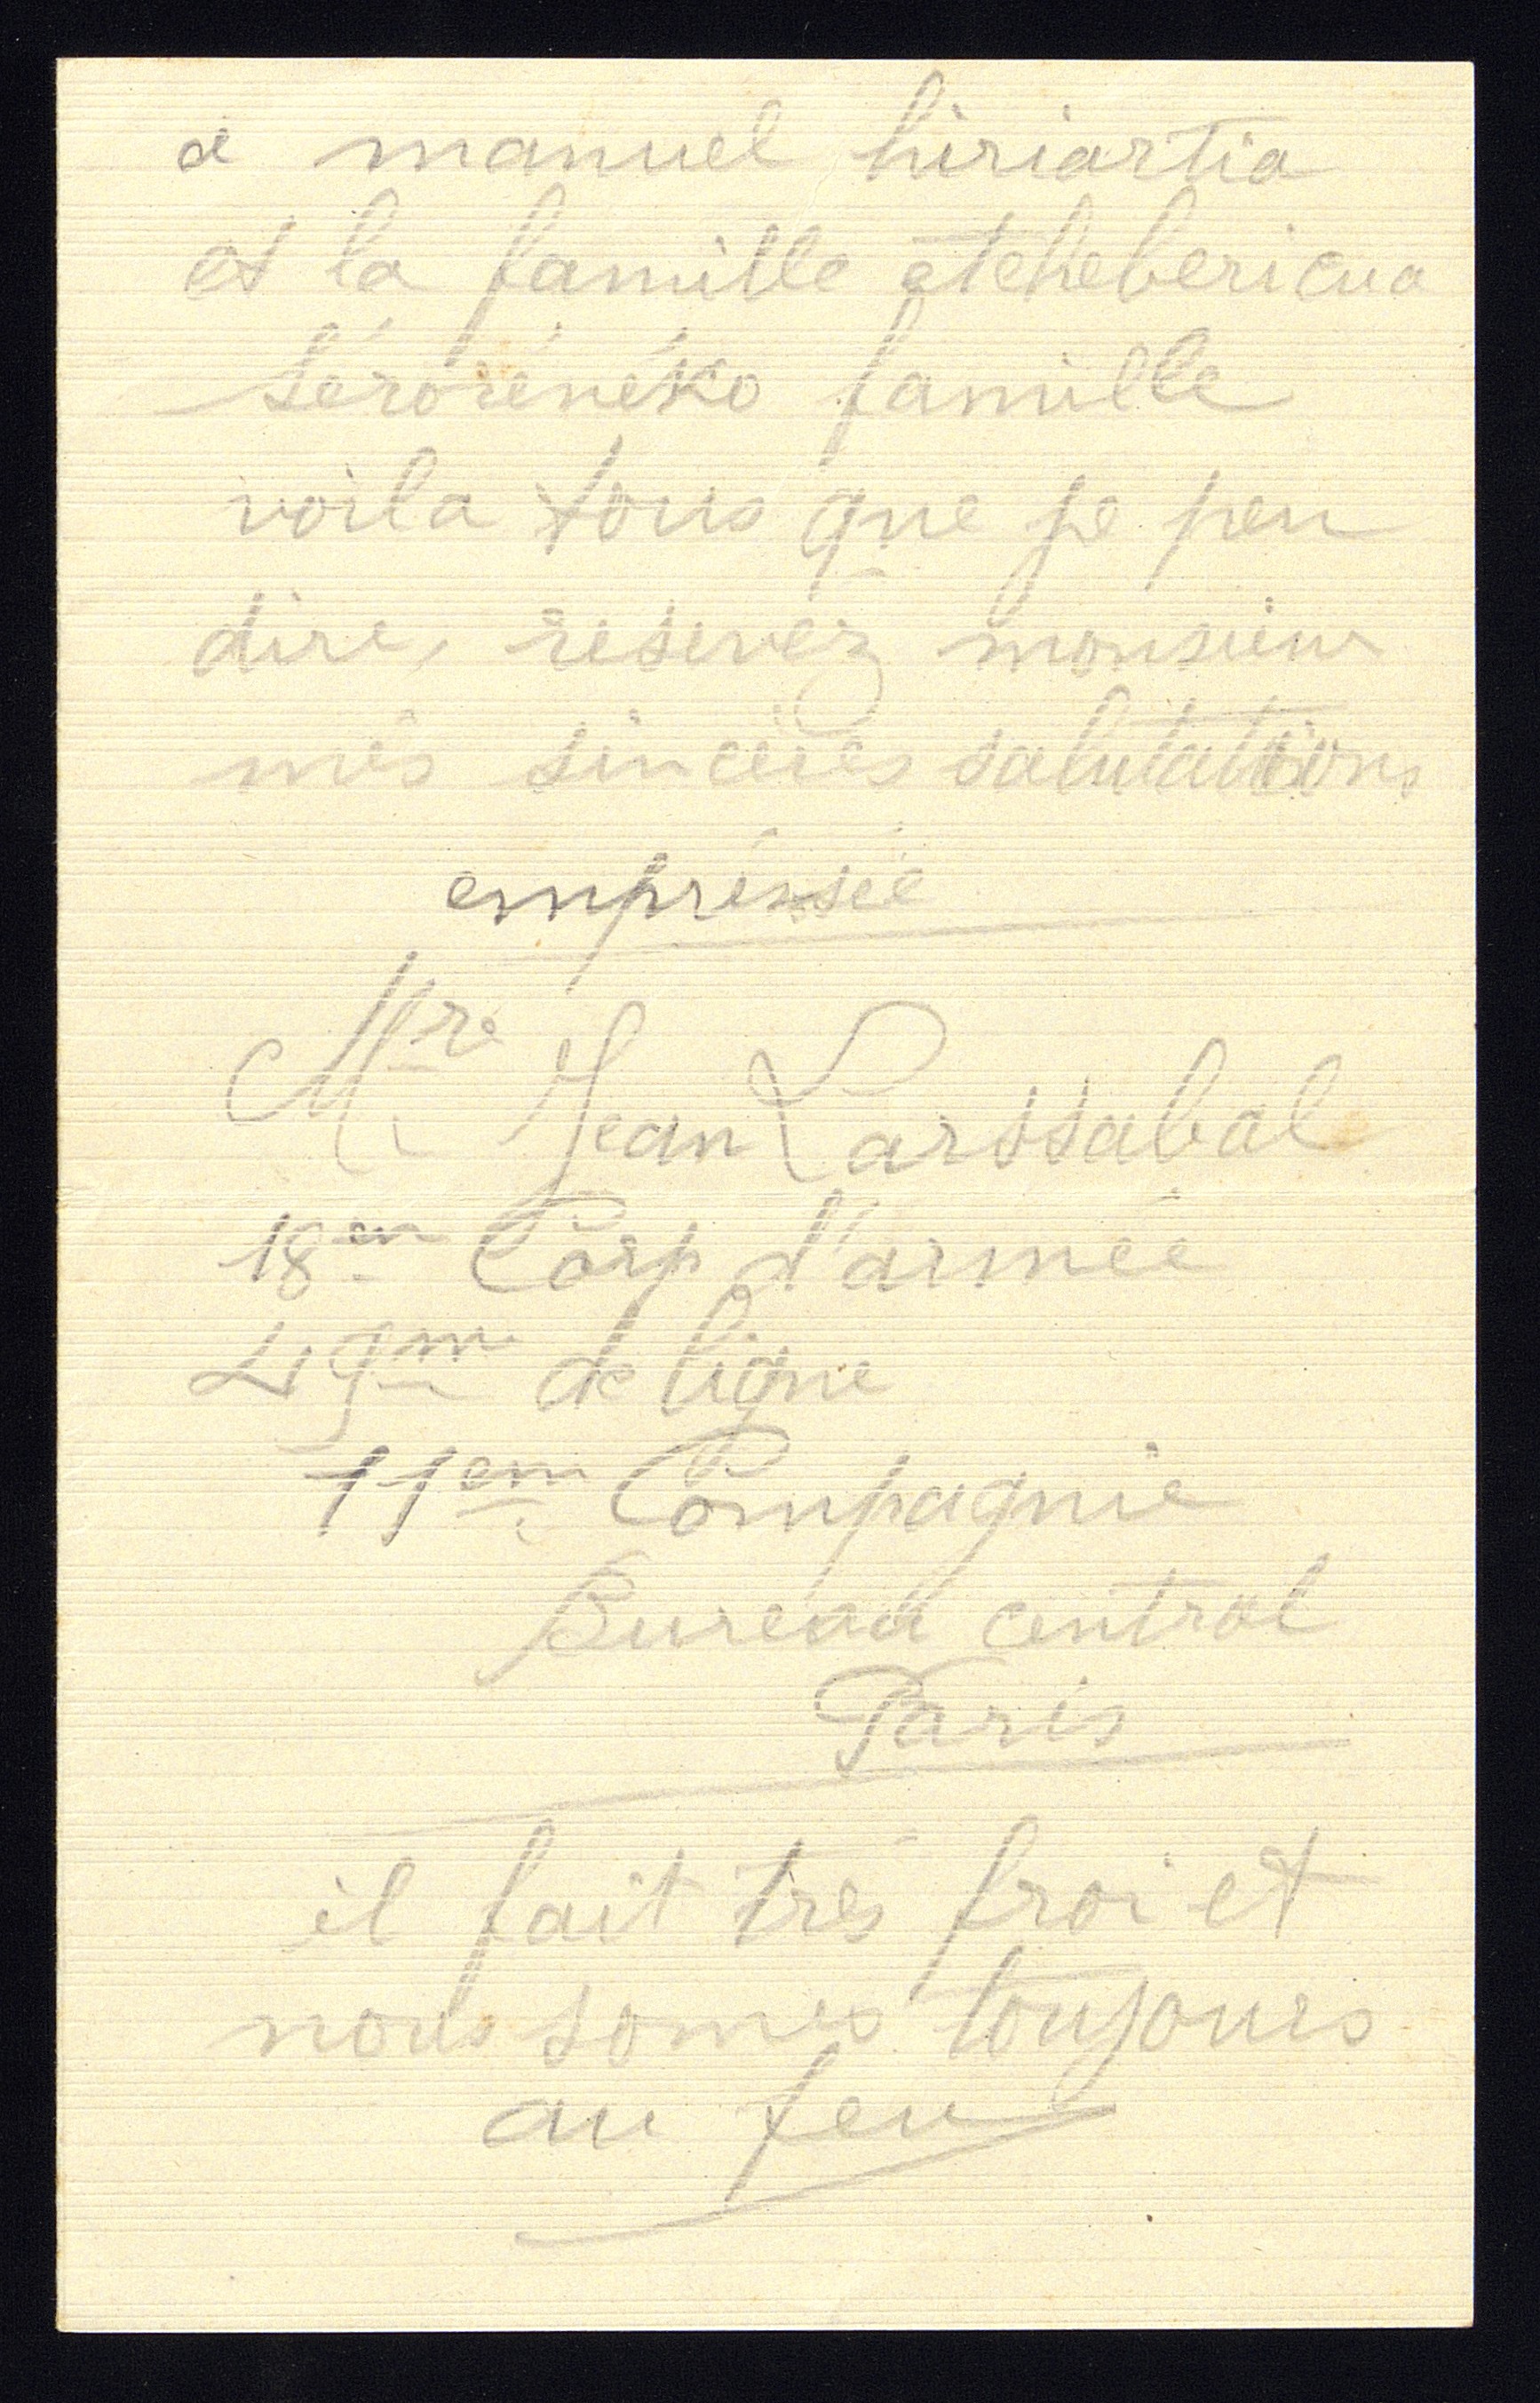 a manuel hiriartia
et la famille etchebericua
séroréneko famille
voila tous que je peu
dire, resevez monsieur
mes sinceres salutations
empréssée
Mre Jean Larssabal
18em Corp d'armée
49em de ligne
11em Compagnie
Bureau central
Paris
il fait trés froi et
nous somes toujours
au feu